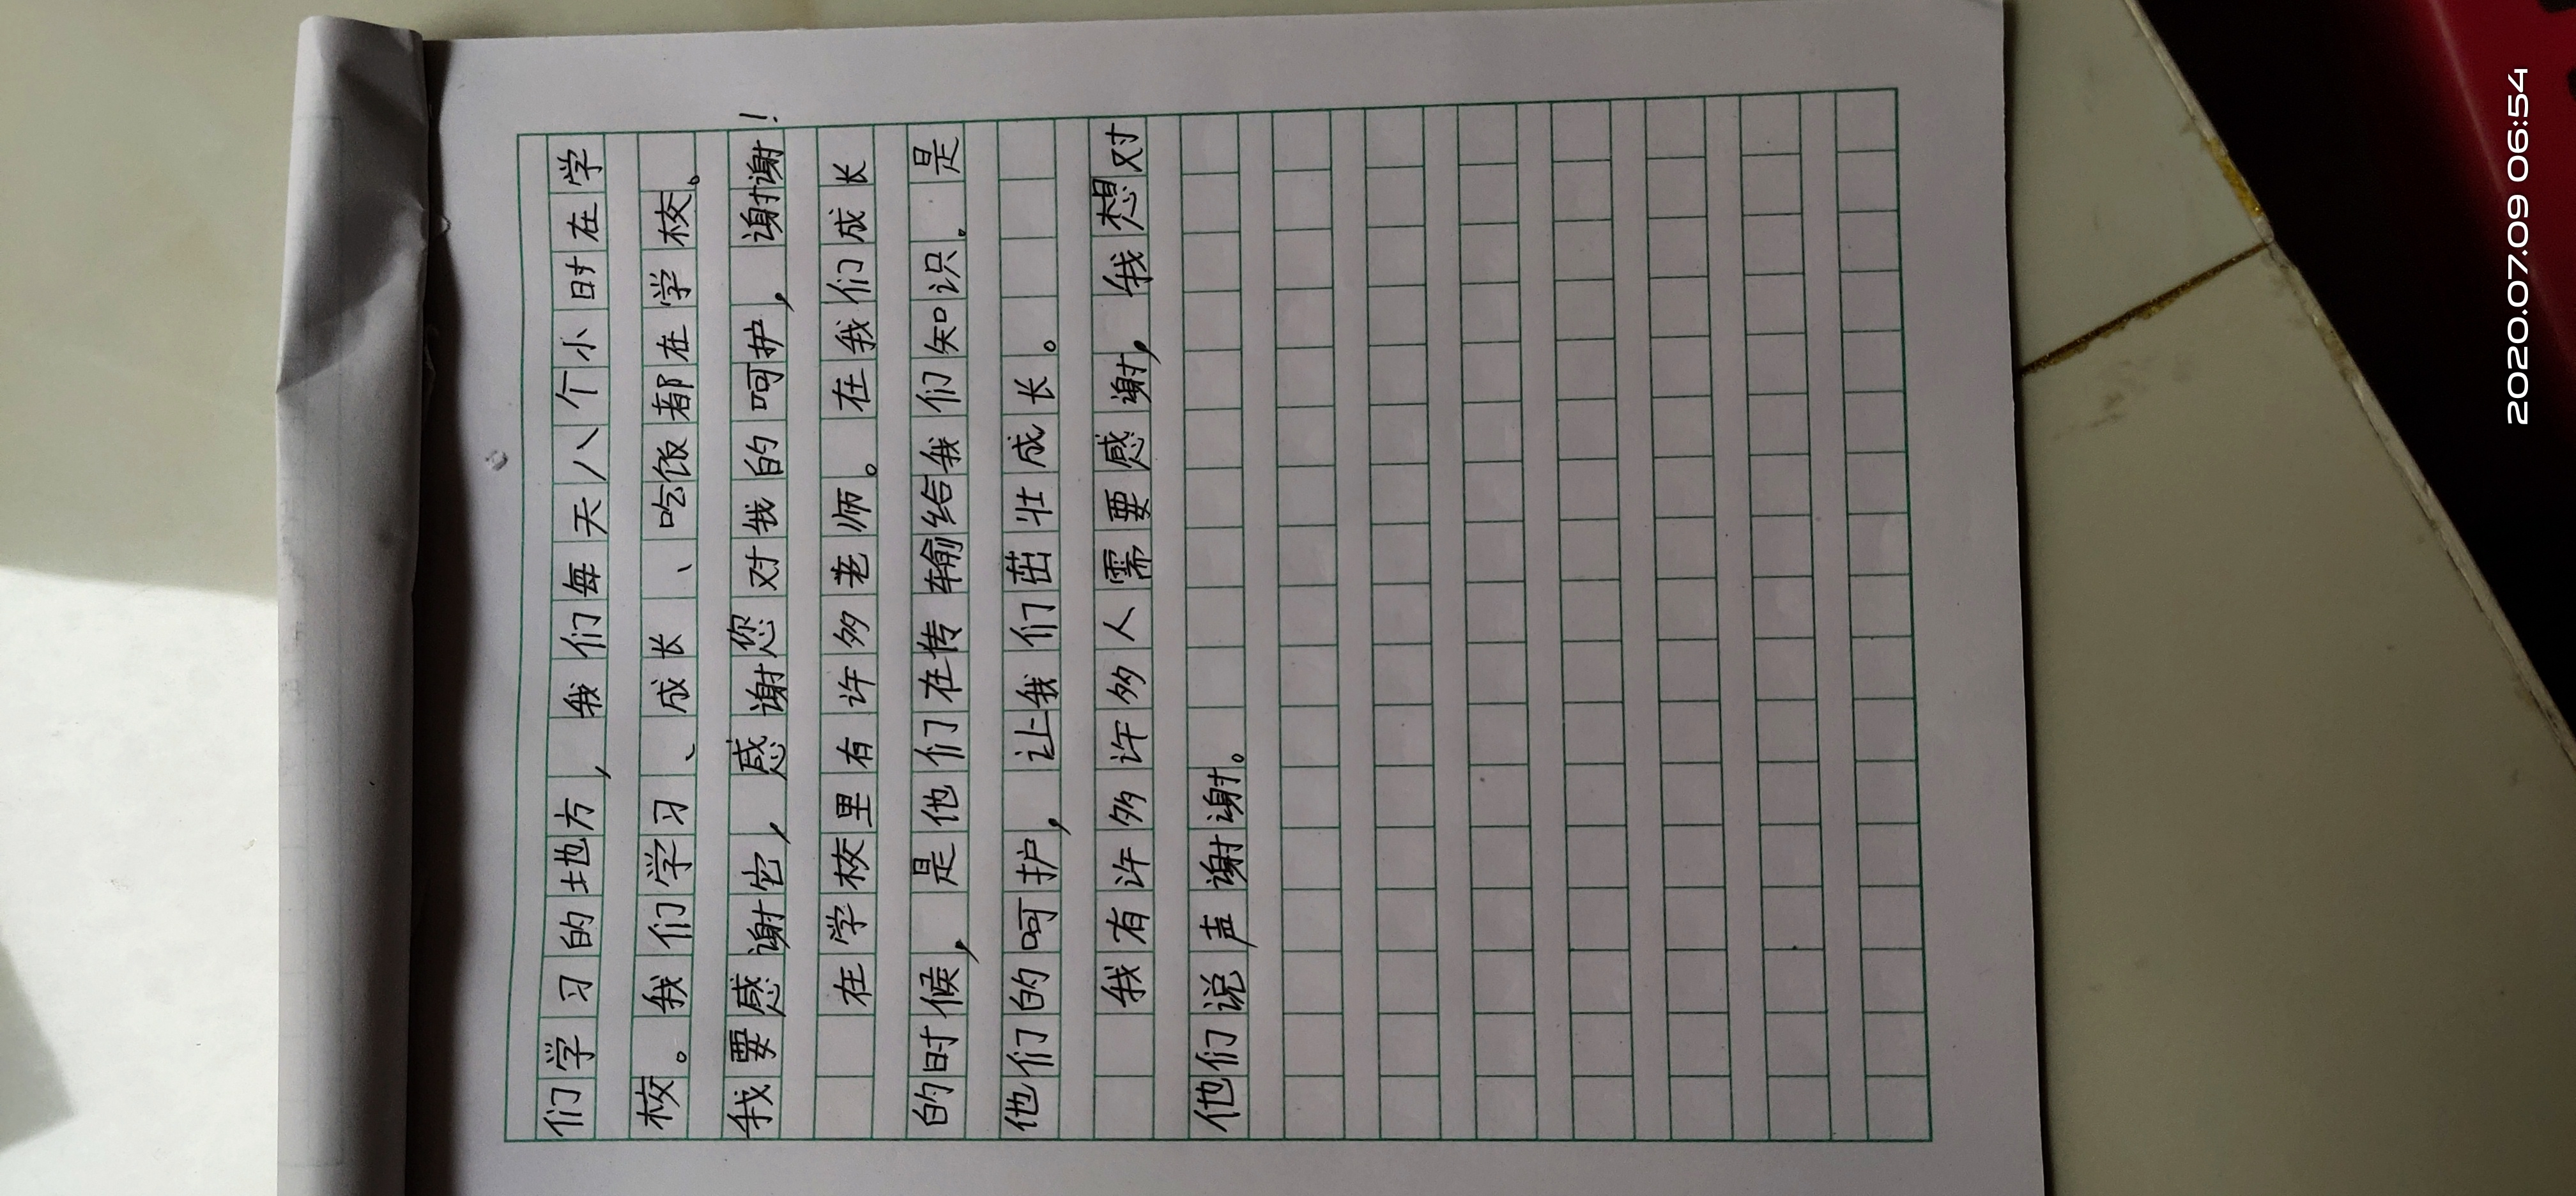 们学习的地方，我们每天八个小时在学
校。我们学习、成长、吃饭都在学校。
我要感谢它，感谢您对我的呵护，谢谢！
在学校里有许多老师。在我们成长
的时候，是他们在传输给我们知识。是
他们的呵护，让我们茁壮成长。
我有许多许多人需要感谢，我想对
他们说声谢谢。
2020.07.09 06:54